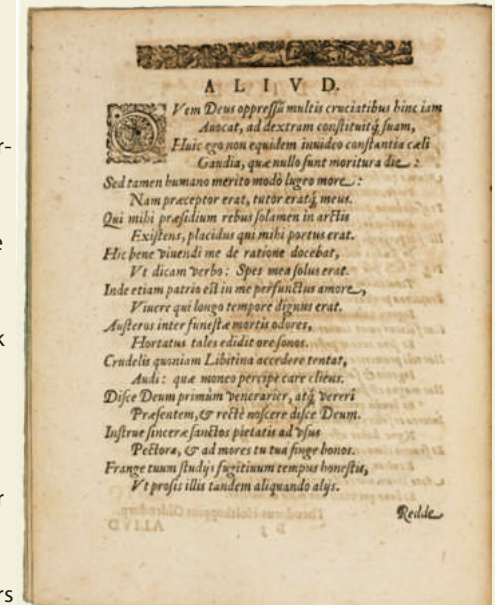 r-
e
k
r
rs
ALIVD.
QVem Deus oppressũ multis cruciatibus hinc iam
Auocat, ad dextram constituitq́; suam,
Huic ego non equidem inuideo constantia cæli
Gaudia, quæ nullo sunt moritura die:
Sed tamen humano merito modò lugeo more:
Nam præceptor erat, tutor eratq́; meus.
Qui mihi præsidium rebus solamen in arctis
Existens, placidus qui mihi portus erat.
Hic bene viuendi me de ratione docebat,
Vt dicam verbo: Spes mea solus erat.
Inde etiam patrio est in me perfunctus amore,
Viuere qui longo tempore dignus erat.
Austeros inter funestæ mortis odores,
Hortatus tales edidit ore sonos.
Crudelis quoniam Libitina accedere tentat,
Audi: quæ moneo percipe care cliens.
Disce Deum primùm venerarier, atq́; vereri
Præsentem, & rectè noscere disce Deum.
Instrue sinceræ sanctos pietatis ad vsus
Pectora, & ad mores tu tua finge bonos.
Frange tuum studijs fugitiuum tempus honestis,
Vt prosis illis tandem aliquando alijs.
Redde